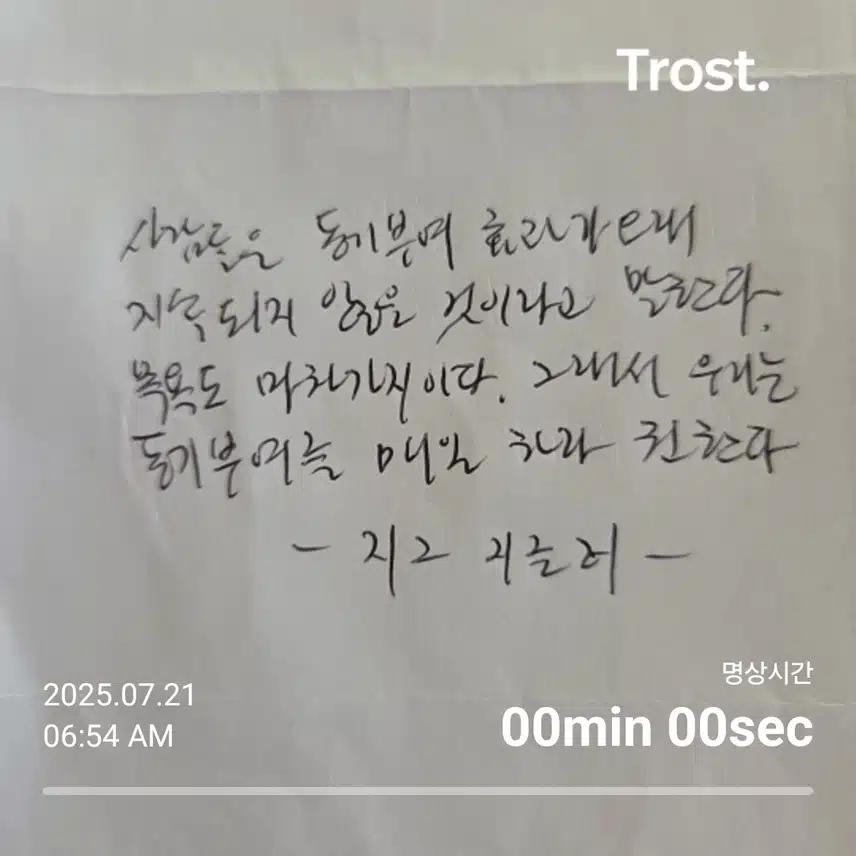 Trost.
사람들은 동기부여 효과가 오래
지속되지 않은 것이라고 말한다.
목욕도 마찬가지이다. 그래서 우리는
동기부여를 매일 하라 권한다
- 지그 지글러 -
명상시간
2025.07.21
00min 00sec
06:54 AM